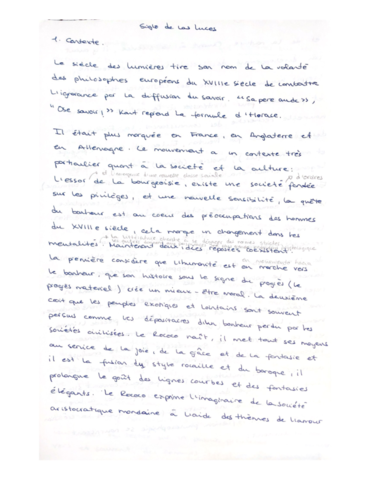 Siglo de Las Luces
1. Contexte.
Le siècle des lumières tire son nom de la volonté
des philosophes européens du XVIIIe siècle de combattre
L'ignorance par la diffusion du savoir. "Sapere aude",
"Ose savoir," Kant reprend la formule d'Horace.
Il était plus marquée en France, en Angleterre et
en Allemagne. Ce mouvement a un contexte très
particulier quant à la société et la culture:
L'essor de la bourgeoisie, existe une société fondée
sur les privilèges, et une nouvelle sensibilité, la quête
du bonheur est au coeur des préoccupations des hommes
du XVIII e siècle, cela marque un changement dans les
mentalités. Maintenant deux idées coexistent:
La première considère que L'humanité est en marche vers
le bonheur, que son histoire sous le signe du progrès (le
progrès matériel) crée un mieux-être moral. La deuxième
c'est que les peuples exotiques et lointains sont souvent
perçus comme les dépositaires d'un bonheur perdu par les
sociétés civilisées. Le Rococo naît, il met tout ses moyens
au service de la joie, de la grâce et de la fantaisie et
il est la fusion du style rocaille et du baroque, il
prolongue le goût des lignes courbes et des fantaisies
élégants. Le Rococo exprime l'imaginaire de la société
aristocratique mondaine à L'aide des thèmes de L'amour